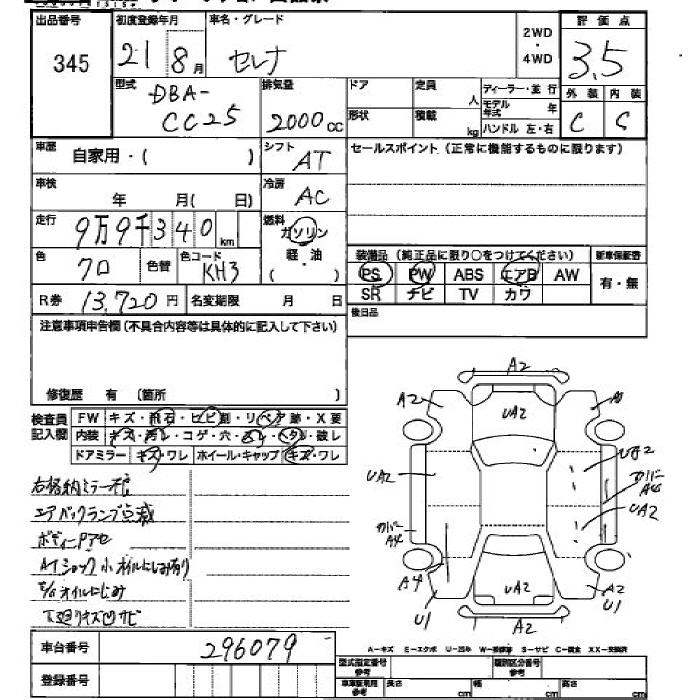 出品番号 初度登録年月 車名・グレード 評価点
345 21 8月 セレナ 2WD・4WD 3.5
型式 DBA-CC25 排気量 2000cc ドア 定員 人 ディーラー・並行 外装 内装
形状 積載 kg モデル年式 年 ハンドル 左・右 C C
車歴 自家用・( ) シフト AT セールスポイント(正常に機能するものに限ります)
車検 年 月( 日) 冷房 AC
走行 9万9千340km 燃料 ガソリン
軽・油
色 クロ 色替 色コード KH3 装備品(純正品に限り○をつけてください) 新車保証書
PS PW ABS エアB AW 有・無
SR ナビ TV カワ
R券 13,720円 名変期限 月 日 後日品
注意事項申告欄(不具合内容等は具体的に記入して下さい)
修復歴 有(箇所 )
検査員記入欄 FW キズ・飛石・ヒビ割・リペア跡・X要
内装 キズ・汚レ・コゲ・穴・ ・ ・破レ
ドアミラー キズ・ワレ ホイール・キャップ キズ・ワレ
右格納ミラー不
エアバックランプ点滅
ボディーPアセ
ATショック小 オイルにじみ有り
E/Gオイルにじみ
下廻りキズ凹サビ
A2
A2 UA2 A
UA2 UA2
カバーA4
UA2
カバーA4
A4 UA2 A2
U1 A2 U1
車台番号 296079
登録番号
A-キズ E-エクボ U-凹み W-補修跡 S-サビ C-腐食 XX-交換済
型式指定番号 参考 類別区分番号 参考
車両販売用 参考 長さ cm 幅 cm 高さ cm